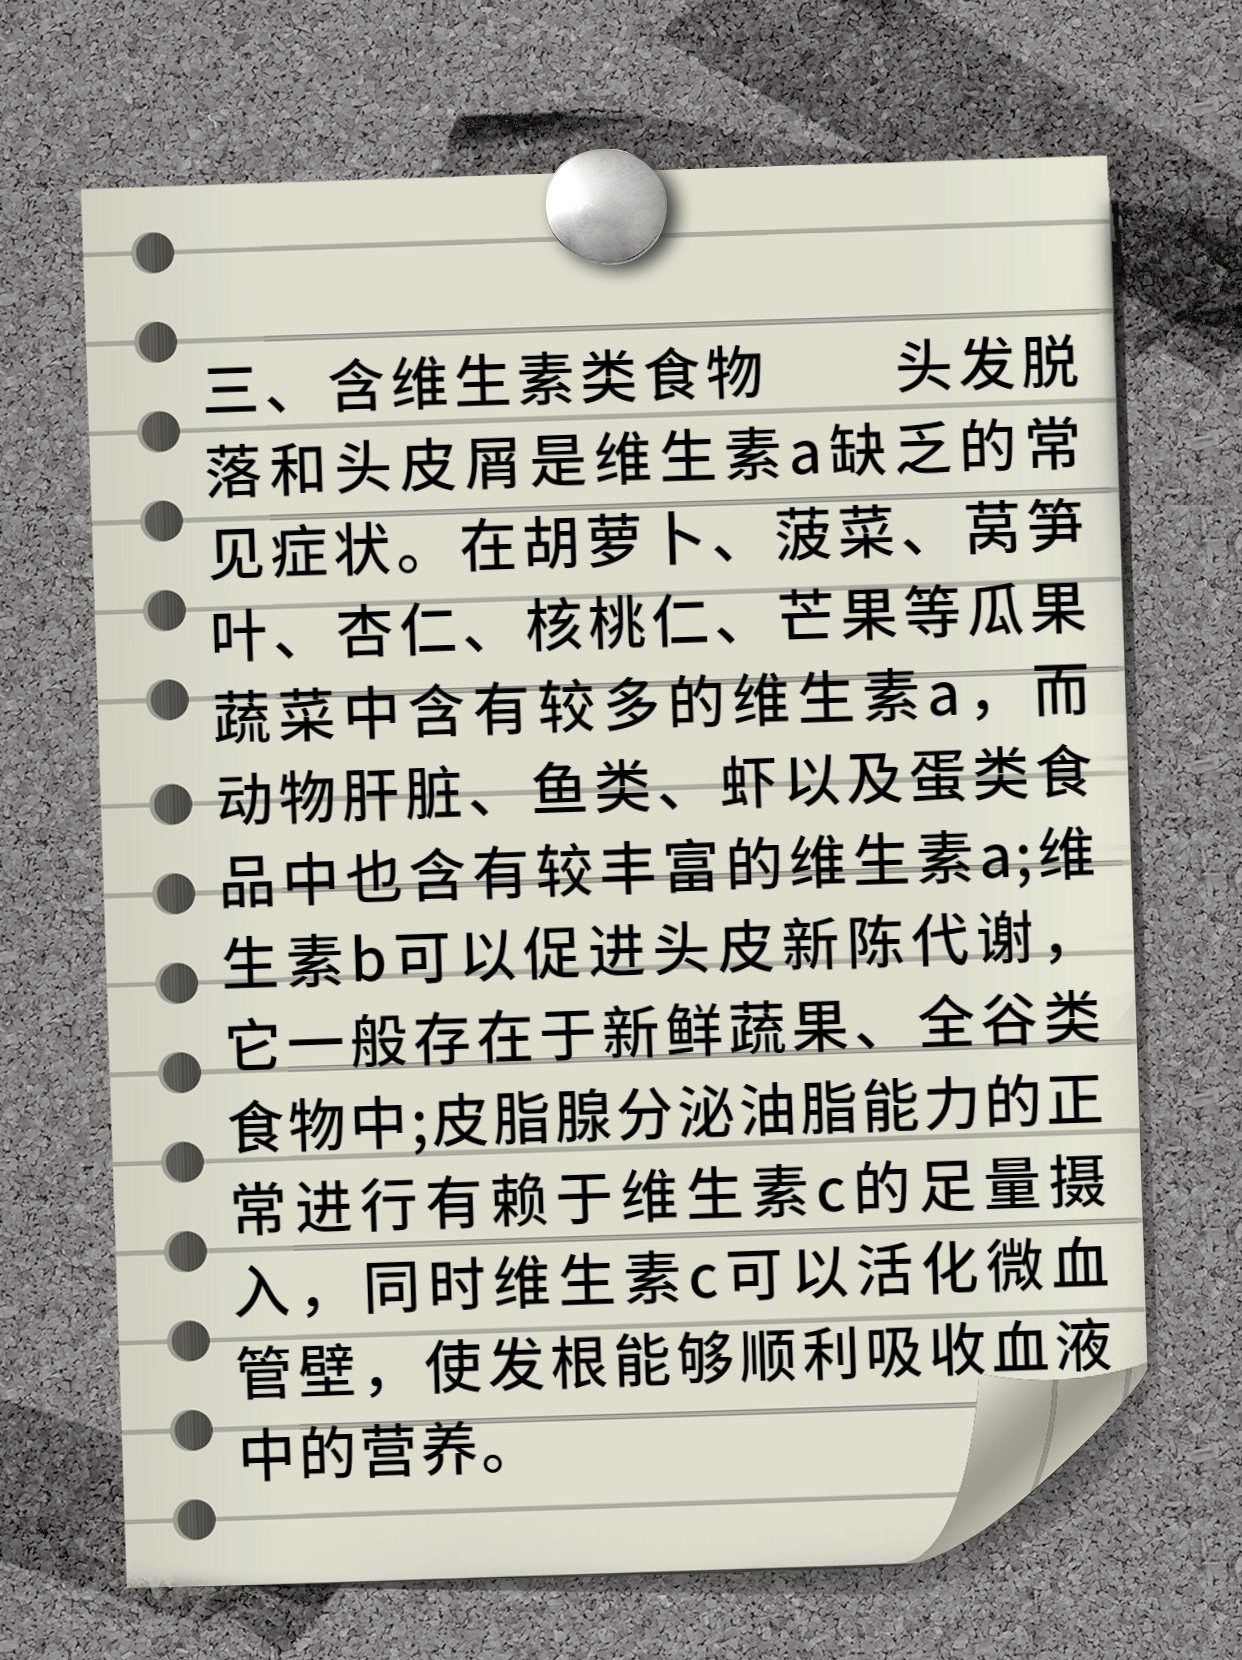 三、含维生素类食物　　头发脱
落和头皮屑是维生素a缺乏的常
见症状。在胡萝卜、菠菜、莴笋
叶、杏仁、核桃仁、芒果等瓜果
蔬菜中含有较多的维生素a，而
动物肝脏、鱼类、虾以及蛋类食
品中也含有较丰富的维生素a;维
生素b可以促进头皮新陈代谢，
它一般存在于新鲜蔬果、全谷类
食物中;皮脂腺分泌油脂能力的正
常进行有赖于维生素c的足量摄
入，同时维生素c可以活化微血
管壁，使发根能够顺利吸收血液
中的营养。